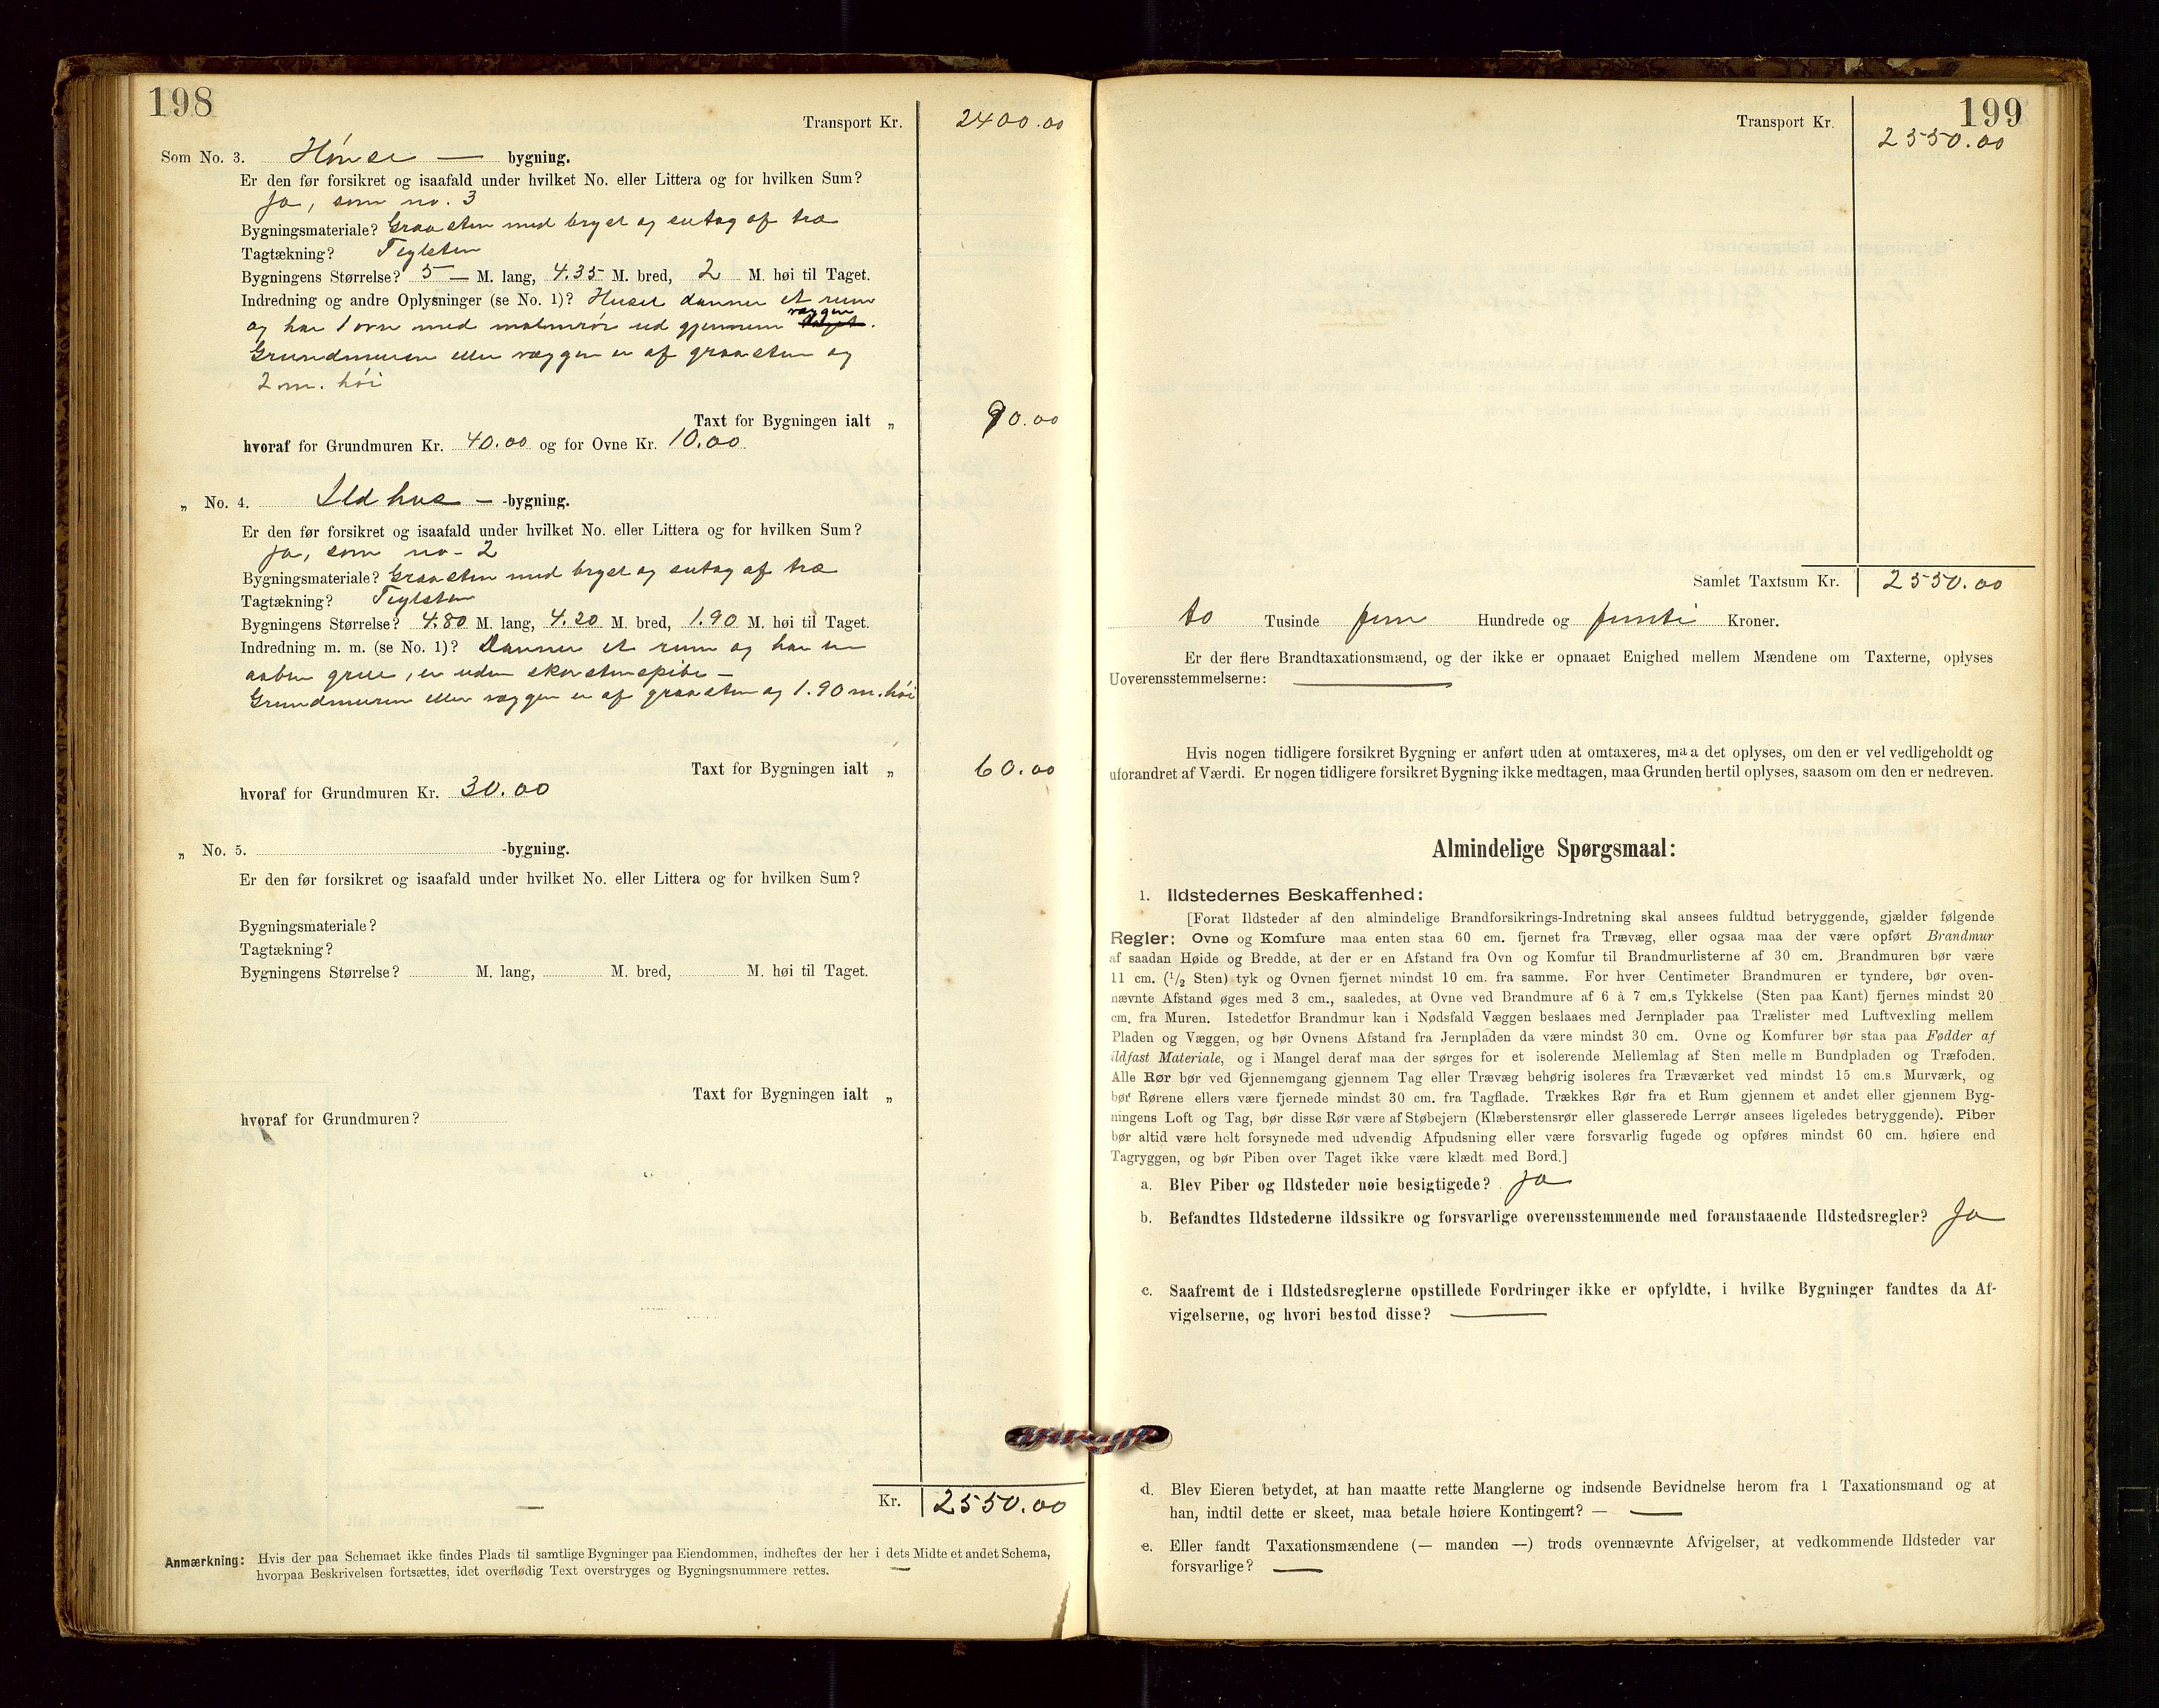 198
Transport Kr. 2400.00
Som No. 3. Hönse — bygning.
Er den før forsikret og isaafald under hvilket No. eller Littera og for hvilken Sum?
Ja, som no. 3
Bygningsmateriale? Graasten med bryst og sutag af træ
Tagtækning? Teglsten
Bygningens Størrelse? 5 — M. lang, 4.35 M. bred, 2 M. høi til Taget.
Indredning og andre Oplysninger (se No. 1)? Huset danner et rum
og har 1 ovn med malmrör ud gjennem væggen.
Grundmuren eller væggen er af graasten og
2 m. höi
Taxt for Bygningen ialt „ 90.00
hvoraf for Grundmuren Kr. 40.00 og for Ovne Kr. 10.00
„ No. 4. Ildhus — -bygning.
Er den før forsikret og isaafald under hvilket No. eller Littera og for hvilken Sum?
Ja, som no. 2
Bygningsmateriale? Graasten med bryst og sutag af træ
Tagtækning? Teglsten
Bygningens Størrelse? 4.80 M. lang, 4.20 M. bred, 1.90 M. høi til Taget.
Indredning m. m. (se No. 1)? Danner et rum og har en
aaben grue, er uden skorstenspibe —
Grundmuren eller væggen er af graasten og 1.90 m. höi
Taxt for Bygningen ialt „ 60.00
hvoraf for Grundmuren Kr. 30.00
„ No. 5. -bygning.
Er den før forsikret og isaafald under hvilket No. eller Littera og for hvilken Sum?
Bygningsmateriale?
Tagtækning?
Bygningens Størrelse? M. lang, M. bred, M. høi til Taget.
Taxt for Bygningen ialt „
hvoraf for Grundmuren?
Kr. 2550.00
Anmærkning: Hvis der paa Schemaet ikke findes Plads til samtlige Bygninger paa Eiendommen, indheftes der her i dets Midte et andet Schema,
hvorpaa Beskrivelsen fortsættes, idet overflødig Text overstryges og Bygningsnummere rettes. —
199
Transport Kr. 2550.00
Samlet Taxtsum Kr. 2550.00
to Tusinde fem Hundrede og femti Kroner.
Er der flere Brandtaxationsmænd, og der ikke er opnaaet Enighed mellem Mændene om Taxterne, oplyses
Uoverensstemmelserne: —
Hvis nogen tidligere forsikret Bygning er anført uden at omtaxeres, maa det oplyses, om den er vel vedligeholdt og
uforandret af Værdi. Er nogen tidligere forsikret Bygning ikke medtagen, maa Grunden hertil oplyses, saasom om den er nedreven.
Almindelige Spørgsmaal:
1. Ildstedernes Beskaffenhed:
[Forat Ildsteder af den almindelige Brandforsikrings-Indretning skal ansees fuldtud betryggende, gjælder følgende
Regler: Ovne og Komfure maa enten staa 60 cm. fjernet fra Trævæg, eller ogsaa maa der være opført Brandmur
af saadan Høide og Bredde, at der er en Afstand fra Ovn og Komfur til Brandmurlisterne af 30 cm. Brandmuren bør være
11 cm. (1/2 Sten) tyk og Ovnen fjernet mindst 10 cm. fra samme. For hver Centimeter Brandmuren er tyndere, bør oven-
nævnte Afstand øges med 3 cm., saaledes, at Ovne ved Brandmure af 6 à 7 cm.s Tykkelse (Sten paa Kant) fjernes mindst 20
cm. fra Muren. Istedetfor Brandmur kan i Nødsfald Væggen beslaaes med Jernplader paa Trælister med Luftvexling mellem
Pladen og Væggen, og bør Ovnens Afstand fra Jernpladen da være mindst 30 cm. Ovne og Komfurer bør staa paa Fødder af
ildfast Materiale, og i Mangel deraf maa der sørges for et isolerende Mellemlag af Sten mellem Bundpladen og Træfoden.
Alle Rør bør ved Gjennemgang gjennem Tag eller Trævæg behørig isoleres fra Træværket ved mindst 15 cm.s Murværk, og
bør Rørene ellers være fjernede mindst 30 cm. fra Tagflade. Trækkes Rør fra et Rum gjennem et andet eller gjennem Byg-
ningens Loft og Tag, bør disse Rør være af Støbejern (Klæberstensrør eller glasserede Lerrør ansees ligeledes betryggende). Piber
bør altid være helt forsynede med udvendig Afpudsning eller være forsvarlig fugede og opføres mindst 60 cm. høiere end
Tagryggen, og bør Piben over Taget ikke være klædt med Bord.]
a. Blev Piber og Ildsteder nøie besigtigede? Ja
b. Befandtes Ildstederne ildssikre og forsvarlige overensstemmende med foranstaaende Ildstedsregler? Ja
c. Saafremt de i Ildstedsreglerne opstillede Fordringer ikke er opfyldte, i hvilke Bygninger fandtes da Af-
vigelserne, og hvori bestod disse? —
d. Blev Eieren betydet, at han maatte rette Manglerne og indsende Bevidnelse herom fra 1 Taxationsmand og at
han, indtil dette er skeet, maa betale høiere Kontingent? — —
e. Eller fandt Taxationsmændene (— manden —) trods ovennævnte Afvigelser, at vedkommende Ildsteder var
forsvarlige? —